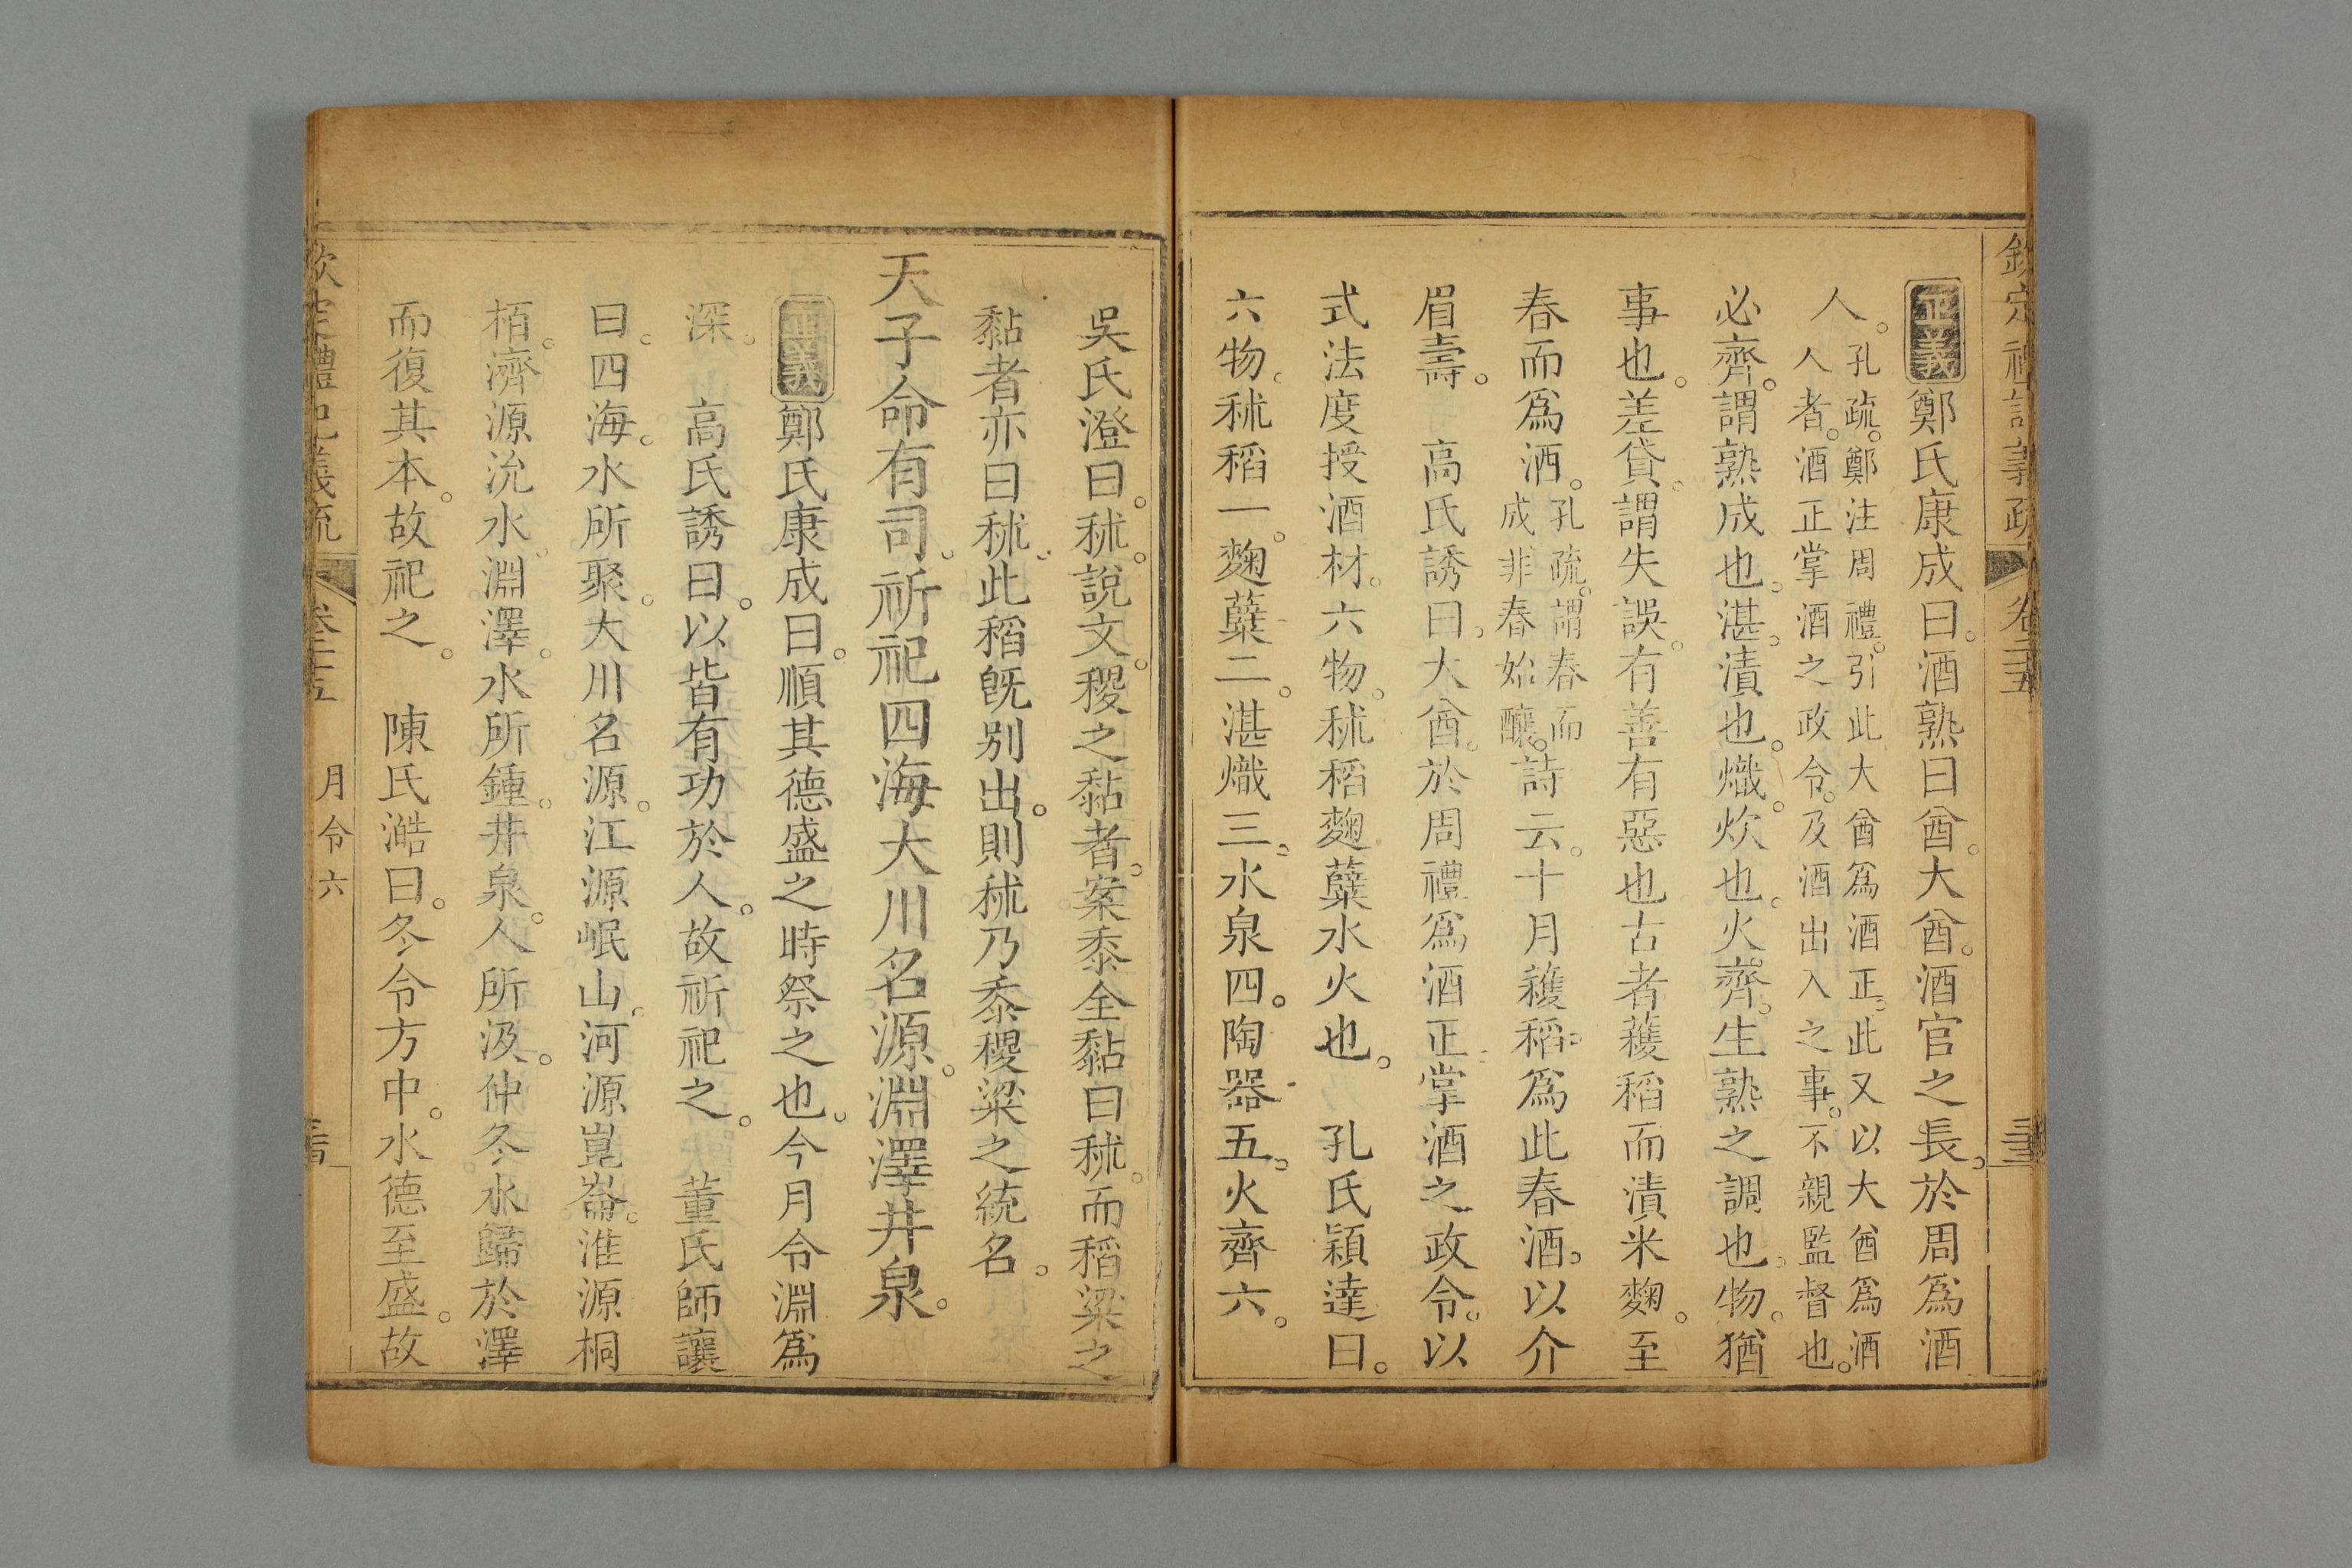 正義鄭氏康成曰。酒熟曰酋。大酋。酒官之長。於周爲酒
人。孔疏。鄭注周禮。引此大酋爲酒正。此又以大酋爲酒
人者。酒正掌酒之政令。及酒出入之事。不親監督也。
必齊。謂熟成也。湛。漬也。熾。炊也。火齊。生熟之調也。物。猶
事也。差貸。謂失誤。有善有惡也古者穫稻而漬米麴。至
春而爲酒。孔疏。謂春而
成非春始釀。詩云。十月穫稻。爲此春酒。以介
眉壽。 高氏誘曰。大酋。於周禮爲酒正。掌酒之政令。以
式法度授酒材。六物。秫稻麴糵水火也。 孔氏穎達曰。
六物。秫稻一。麴糵二。湛熾三。水泉四。陶器五。火齊六。
吳氏澄曰。秫。說文。稷之黏者。案黍全黏曰秫。而稻粱之
黏者亦曰秫。此稻旣别出。則秫乃黍稷粱之統名。
天子命有司。祈祀四海大川名源。淵澤井泉。
正義鄭氏康成曰。順其德盛之時祭之也。今月令淵爲
深。 高氏誘曰。以皆有功於人。故祈祀之。 董氏師讓
曰。四海。水所聚。大川名源。江源岷山。河源崑崙。淮源桐
栢。濟源沇水。淵澤。水所鍾。井泉。人所汲。仲冬。水歸於澤
而復其本。故祀之。 陳氏澔曰。冬令方中。水德至盛。故
月令六